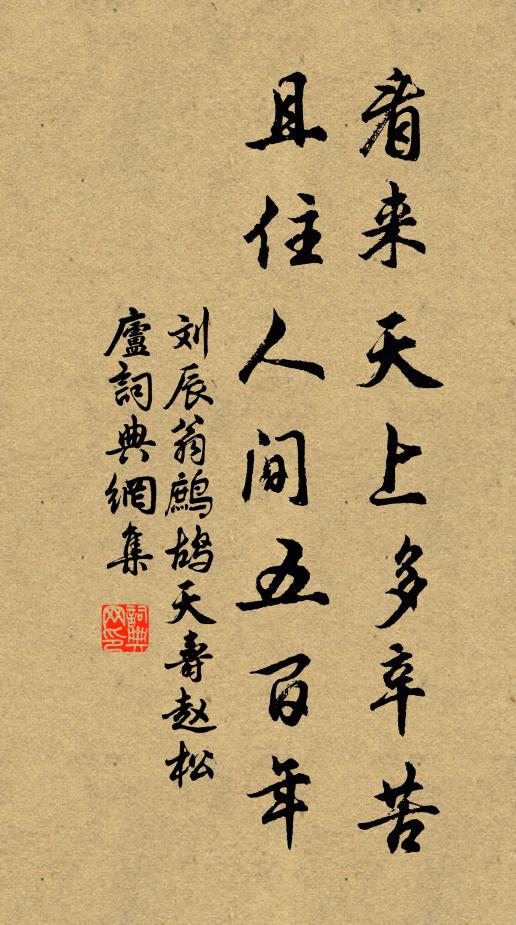 看来天上多辛苦
且住人间五百年
刘辰翁鹧鸪天寿赵松
廬詞典網集
詞典
网印